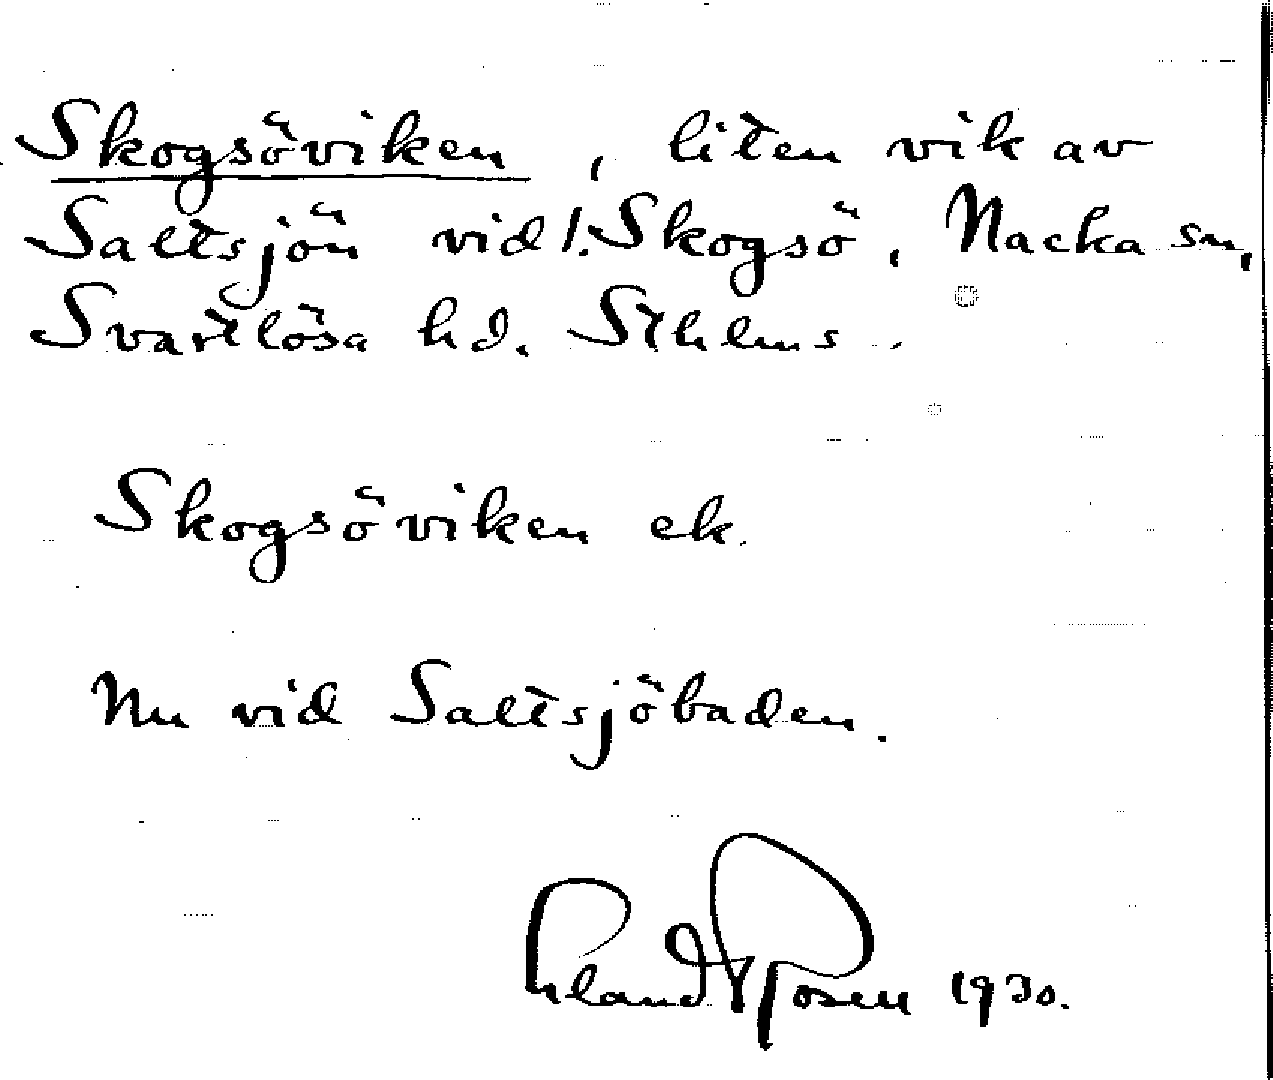 Skogsöviken, liten vik av
Saltsjön vid l. Skogsö, Nacka sn,
Svartlösa hd. Sthlms
Skogsöviken ek.
Nu vid Saltsjöbaden.
Erland Rosell 1930.